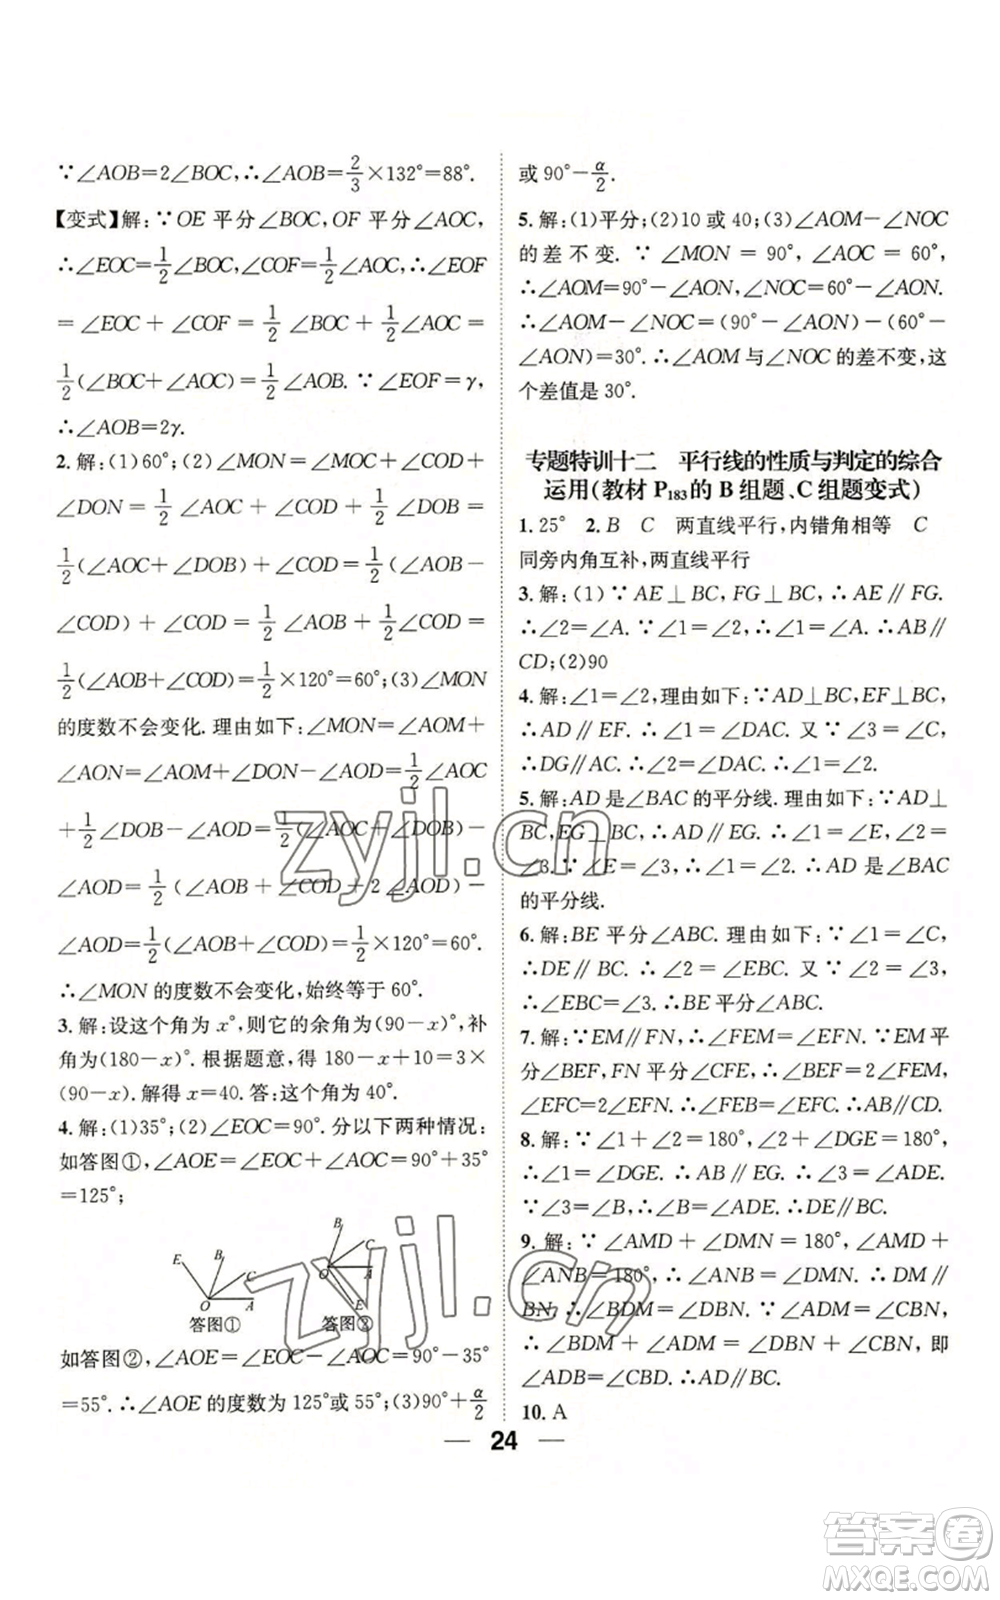 ∵∠AOB=2∠BOC,∴∠AOB=2/3×132°=88°.
【变式】解:∵OE 平分∠BOC,OF 平分∠AOC,
∴∠EOC=1/2∠BOC,∠COF=1/2∠AOC,∴∠EOF
=∠EOC+∠COF=1/2∠BOC+1/2∠AOC=
1/2(∠BOC+∠AOC)=1/2∠AOB.∵∠EOF=γ,
∴∠AOB=2γ.
2.解:(1)60°;(2)∠MON=∠MOC+∠COD+
∠DON=1/2∠AOC+1/2∠DOB+∠COD=
1/2(∠AOC+∠DOB)+∠COD=1/2(∠AOB-
∠COD)+∠COD=1/2∠AOB+1/2∠COD=
1/2(∠AOB+∠COD)=1/2×120°=60°;(3)∠MON
的度数不会变化.理由如下:∠MON=∠AOM+
∠AON=∠AOM+∠DON-∠AOD=1/2∠AOC
+1/2∠DOB-∠AOD=1/2(∠AOC+∠DOB)-
∠AOD=1/2(∠AOB+∠COD+2∠AOD)-
∠AOD=1/2(∠AOB+∠COD)=1/2×120°=60°.
∴∠MON的度数不会变化,始终等于60°.
3.解:设这个角为x°,则它的余角为(90-x)°,补
角为(180-x)°.根据题意,得 180-x+10=3×
(90-x).解得 x=40.答:这个角为40°.
4.解:(1)35°;(2)∠EOC=90°.分以下两种情况:
如答图①,∠AOE=∠EOC+∠AOC=90°+35°
=125°;
E B C O A
答图①
B C O A E
答图②
如答图②,∠AOE=∠EOC-∠AOC=90°-35°
=55°.∴∠AOE的度数为125°或55°;(3)90°+α/2
或90°-α/2.
5.解:(1)平分;(2)10或40;(3)∠AOM-∠NOC
的差不变.∵∠MON=90°,∠AOC=60°,
∴∠AOM=90°-∠AON,∠NOC=60°-∠AON.
∴∠AOM-∠NOC=(90°-∠AON)-(60°-
∠AON)=30°.∴∠AOM与∠NOC的差不变,这
个差值是30°.
专题特训十二 平行线的性质与判定的综合
运用(教材P183的B组题、C组题变式)
1.25° 2.B C 两直线平行,内错角相等 C
同旁内角互补,两直线平行
3.解:(1)∵AE⊥BC,FG⊥BC,∴AE∥FG.
∴∠2=∠A.∵∠1=∠2,∴∠1=∠A.∴AB∥
CD;(2)90
4.解:∠1=∠2,理由如下:∵AD⊥BC,EF⊥BC,
∴AD∥EF.∴∠2=∠DAC.又∵∠3=∠C,
∴DG∥AC.∴∠2=∠DAC.∴∠1=∠2.
5.解:AD是∠BAC的平分线.理由如下:∵AD⊥
BC,EG⊥BC,∴AD∥EG.∴∠1=∠E,∠2=
∠3.∵∠E=∠3,∴∠1=∠2.∴AD是∠BAC
的平分线.
6.解:BE平分∠ABC.理由如下:∵∠1=∠C,
∴DE∥BC.∴∠2=∠EBC.又∵∠2=∠3,
∴∠EBC=∠3.∴BE平分∠ABC.
7.解:∵EM∥FN,∴∠FEM=∠EFN.∵EM平
分∠BEF,FN平分∠CFE,∴∠BEF=2∠FEM,
∠EFC=2∠EFN.∴∠FEB=∠EFC.∴AB∥CD.
8.解:∵∠1+∠2=180°,∠2+∠DGE=180°,
∴∠1=∠DGE.∴AB∥EG.∴∠3=∠ADE.
∵∠3=∠B,∴∠B=∠ADE.∴DE∥BC.
9.解:∵∠AMD+∠DMN=180°,∠AMD+
∠ANB=180°,∴∠ANB=∠DMN.∴DM∥
BN.∴∠BDM=∠DBN.∵∠ADM=∠CBN,
∴∠BDM+∠ADM=∠DBN+∠CBN,即
∠ADB=∠CBD.∴AD∥BC.
10.A
24
zyjl.cn
zyjl.cn
答案卷
MXQE.COM